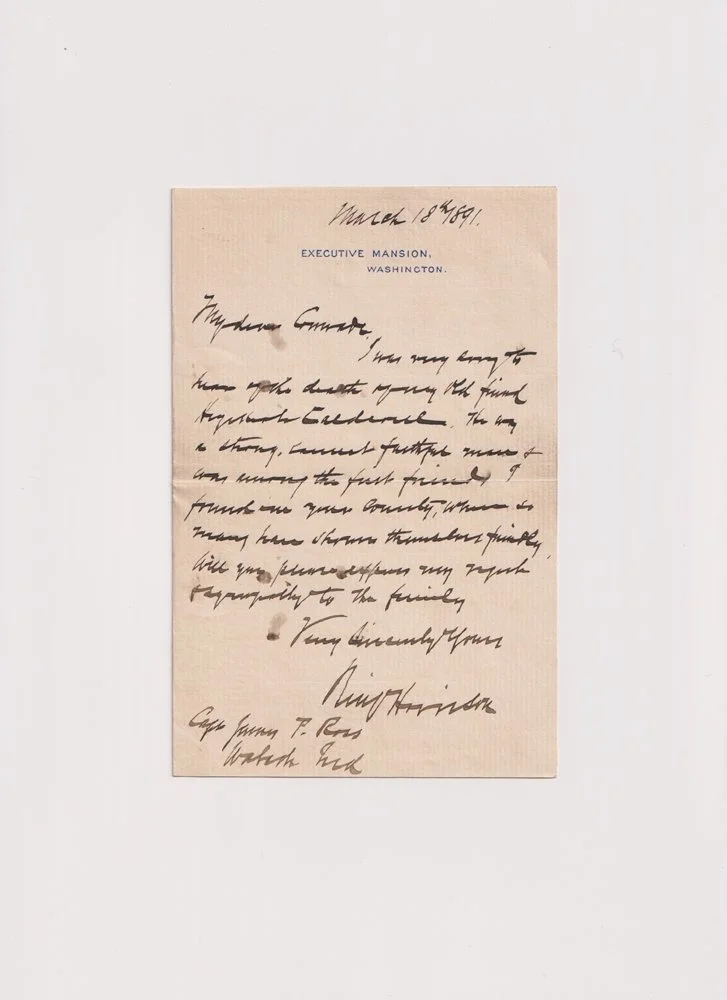 March 18th 1891.
EXECUTIVE MANSION,
WASHINGTON.
My dear Comrade,
I was very sorry to
hear of the death of my old friend
Caldwell. He was
a strong, earnest faithful man &
was among the first friends I
found in your County, where so
many have shown themselves friendly.
Will you please express my regrets
& sympathy to the family
Very Sincerely Yours
Benj Harrison
Capt James P. Ross
Wabash Ind